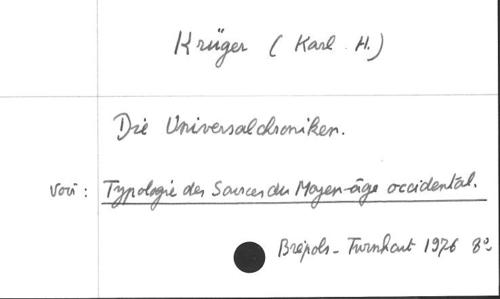 Krüger (Karl. H.)
Die Universalchroniken.
Voir : Typologie des Sources du Moyen-âge occidental.
Brépols - Turnhout 1976 8º